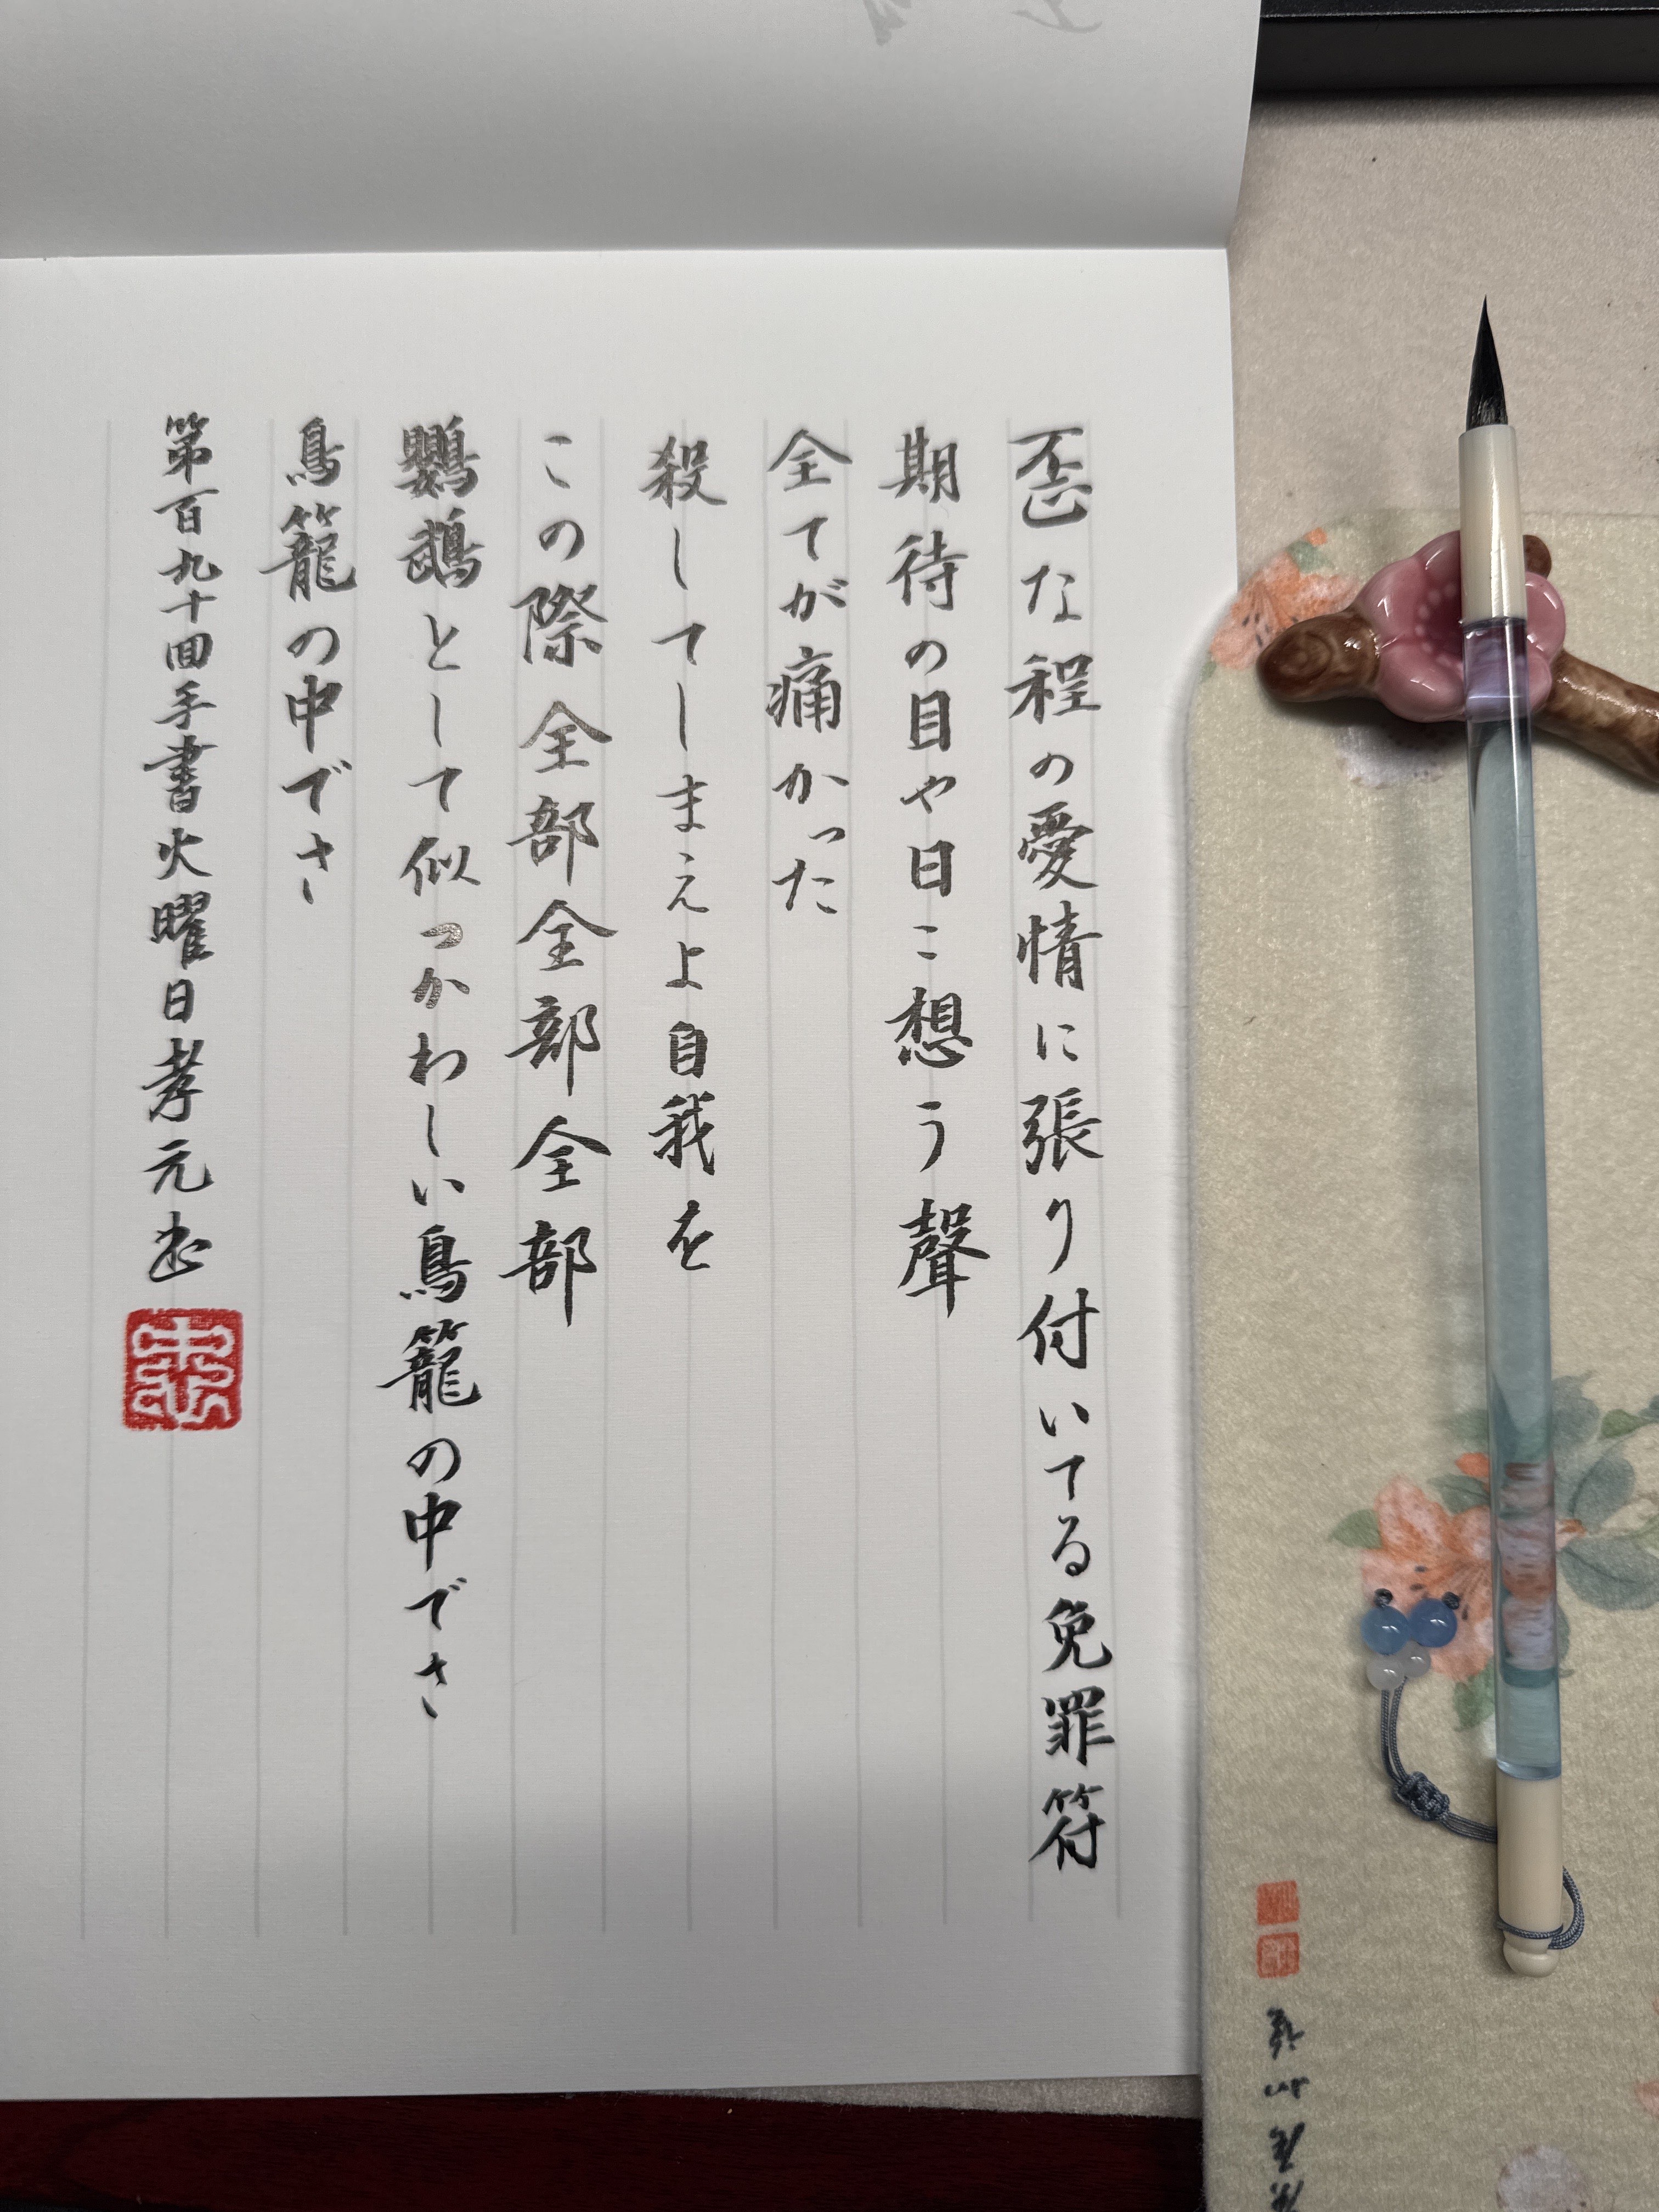 歪な程の愛情に張り付いてる免罪符
期待の目や日こ想う聲
全てが痛かった
殺してしまえよ自我を
この際全部全部全部
鸚鵡として似つかわしい鳥籠の中でさ
鳥籠の中でさ
第百九十回手書火曜日孝元书